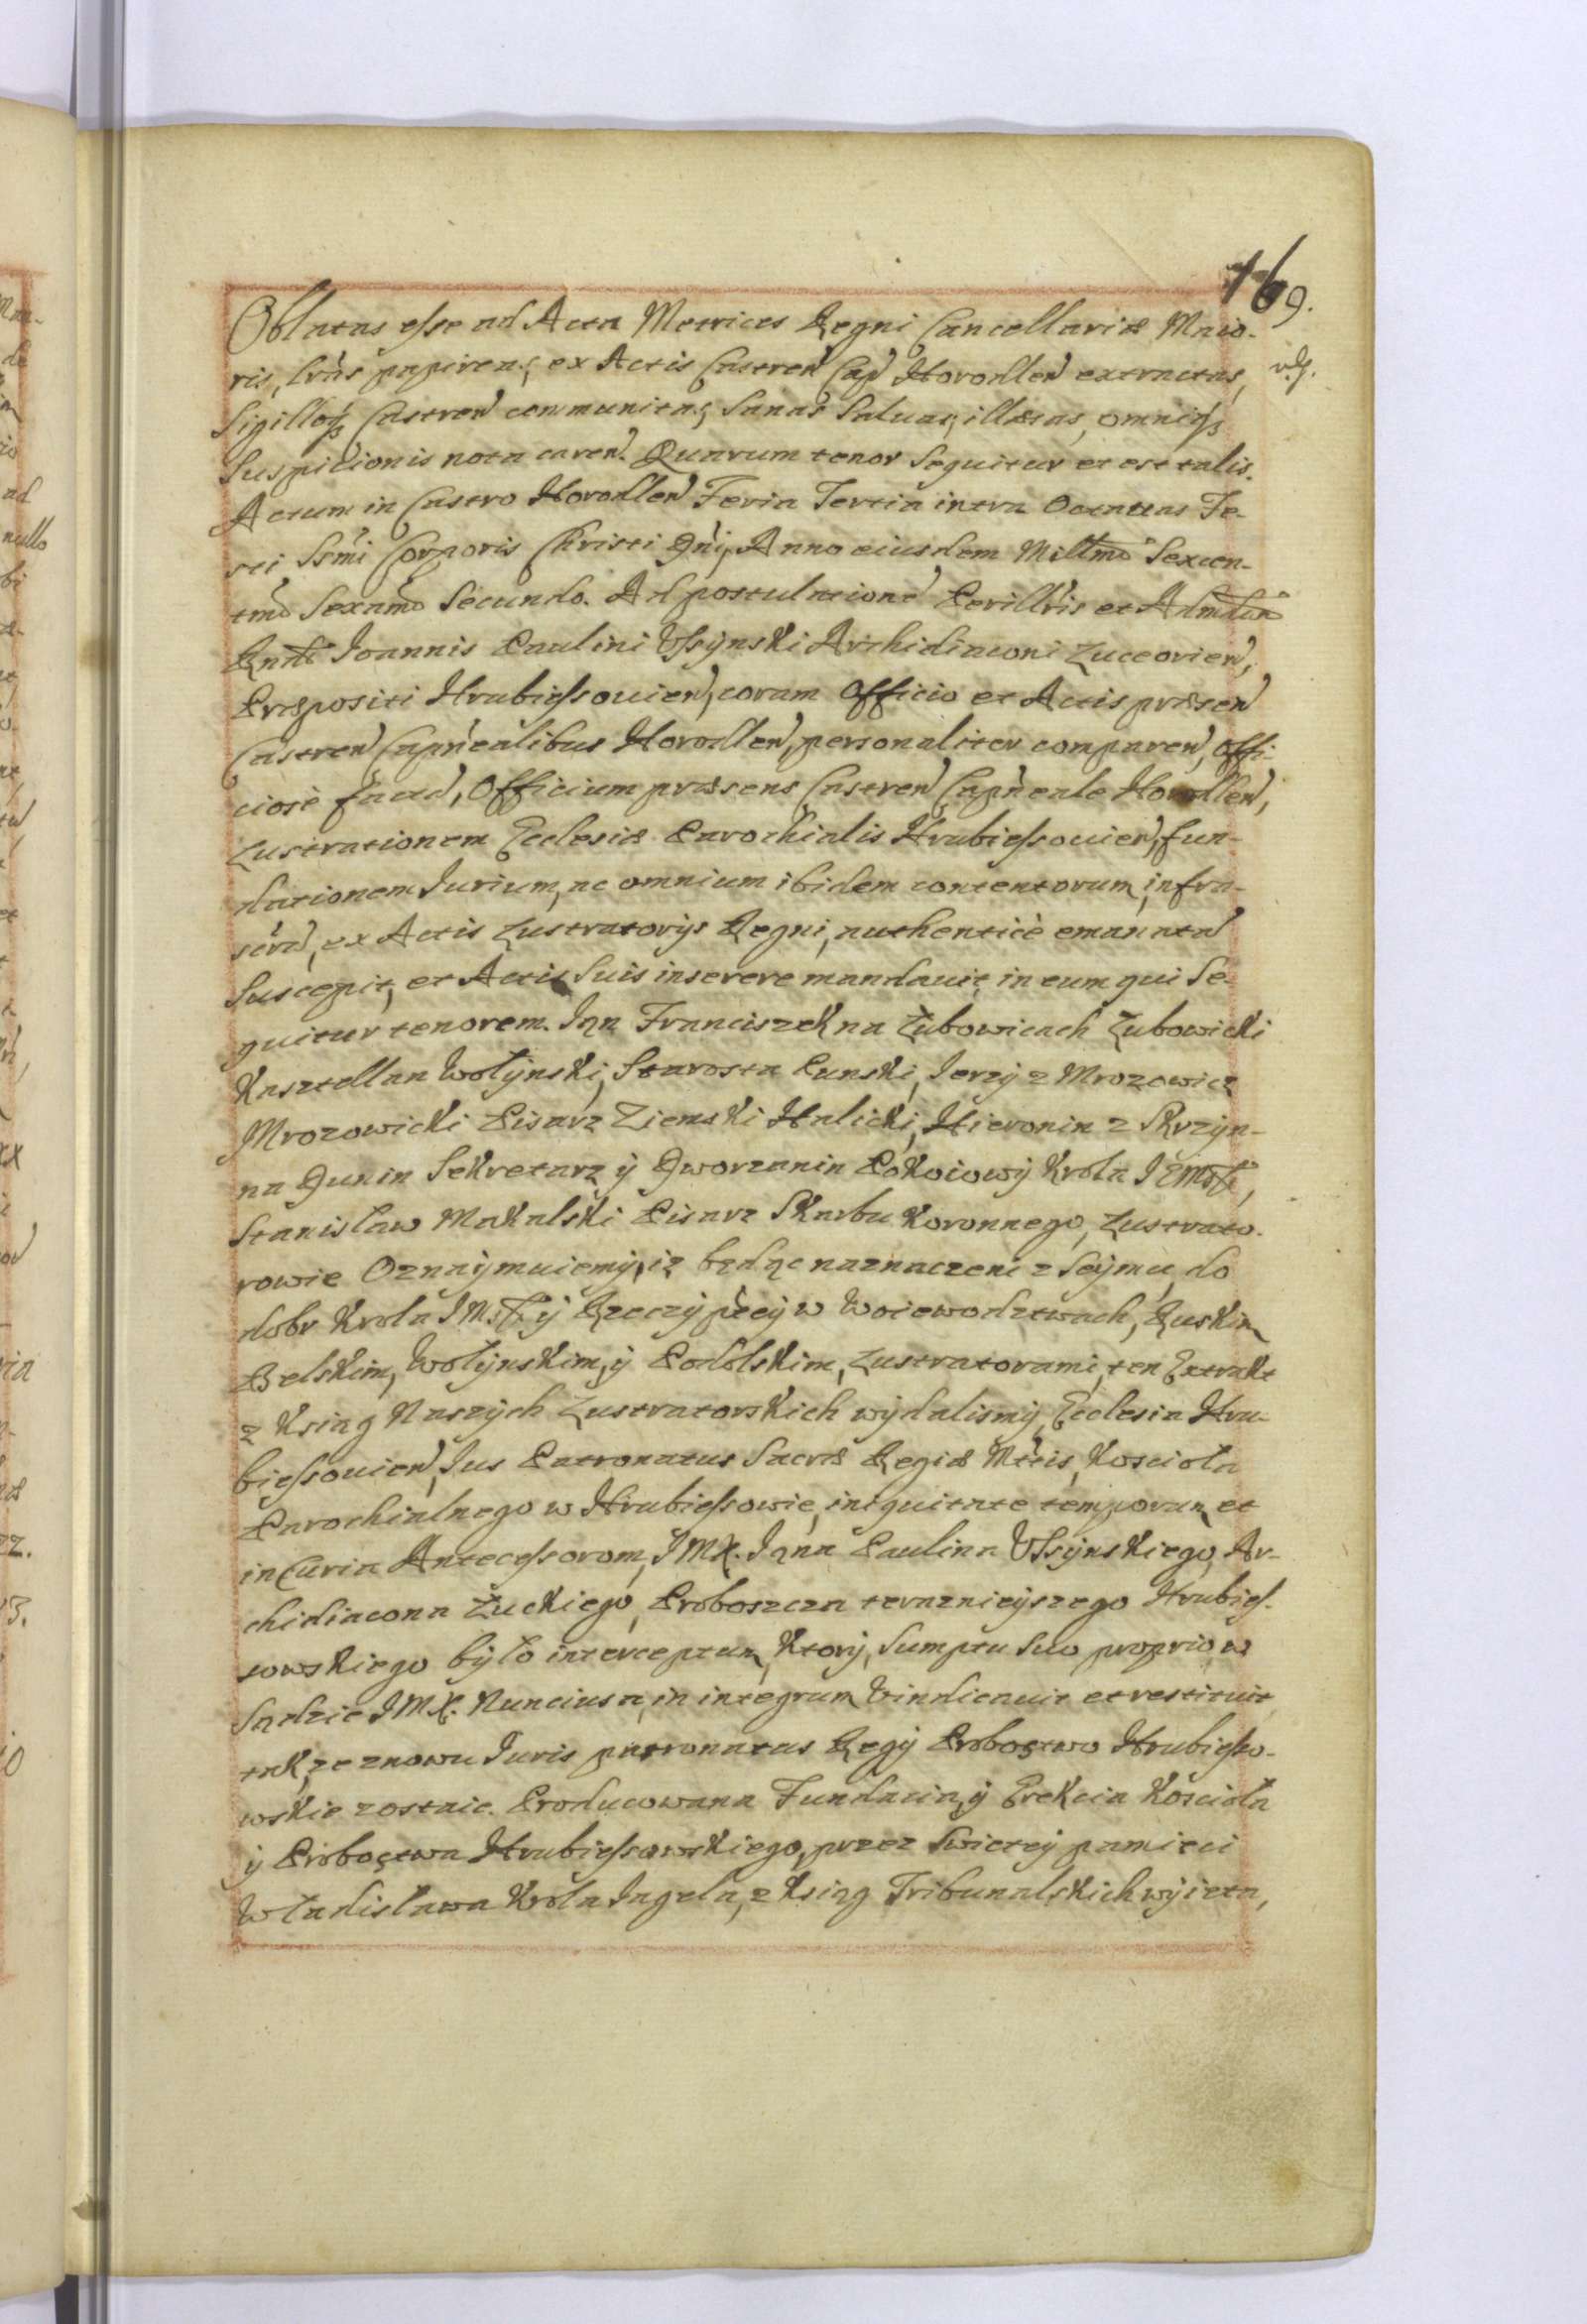 169.
Oblatas esse ad Acta Metrices Regni Cancellariæ Maio-
ris, lras papireas, ex Actis Castren Cap Horodlen extractas,
Sigilloq Castren communitas, Sanas Saluas, illæsas, omniq
Suspicionis nota caren. Quarum tenor Sequitur et est talis.
Actum in Castro Horodlen Feria Tertia intra Octauas Fe-
sti Ssmi Corporis Christi Dni, Anno eiusdem Millmo Sexcen-
tmo Sexamo Secundo. Ad postulatione Perillris et Admdum
Rndi Ioannis Paulini Vssynski Archidiaconi Luceorien,
Præpositi Hrubiessouien, coram Officio et Actis præsen
Castren Capnealibus Horodlen, personaliter comparen, offi-
ciosè factã, Officium præsens Castren Capneale Horodlen,
Lustrationem Ecclesiæ Parochialis Hrubiessouien, fun-
dationem Iurium, ac omnium ibidem contentorum, infra-
scrã, ex Actis Lustratorys Regni, authenticè emanatã
Suscepit, et Actis Suis inserere mandauit, in eum qui Se-
quitur tenorem. Iąn Franciszek na Łubowicach Łubowicki
Kasztellan Wołynski, Starosta Punski, Ierzy z Mrozowic
Mrozowicki Pisarz Ziemski Halicki, Hieronim z Skrzyn-
na Dunin Sekretarz y Dworzanin Pokoiowy Krola IeMsci,
Stanisław Makalski Pisarz Skarbu Koronnego, Lustrato-
rowie Oznaymuiemy, iż będąc naznaczeni z Seymu, do
dobr Krola IMsci y Rzeczyptey w Woiewodztwach, Ruskim
Belskim, Wołynskim, y Podolskim, Lustratorami, ten Extrakt
z Ksiąg Naszych Lustratorskich wydalismy, Ecclesia Hru-
biessouien, Ius Patronatus Sacræ Regiæ Mttis, Koscioła
Parochialnego w Hrubiessowie, iniquitate temporum, et
incuria Antecessorom, IMX. Iąna Paulina Vssynskiego, Ar-
chidiacona Łuckiego, Proboszcza teraznieyszego Hrubies-
sowskiego było interceptum, Ktory, Sumptu Suo proprio w
Sądzie IMX. Nunciusa, in integrum Vindicauit et restituit,
tak, ze znowu Iuris patronatus Regij Probostwo Hrubiesso-
wskie zostaie. Producowana Fundacia, y Erekcia Koscioła
y Probostwa Hrubiessowskiego, przez Swietey pamieci
Władisława Krola Iagela, z Ksiąg Tribunalskich wyieta,